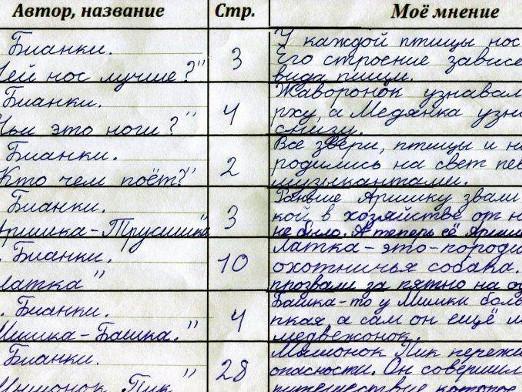 Автор, название
Стр.
Моё мнение
Бианки.
Чей нос лучше?"
3
У каждой птицы нос
Его строение зависе
вида пищи.
Бианки.
Чьи это ноги?"
4
Жаворонок узнавал
рху, а Медянка узн
снизу.
Бианки.
Кто чем поёт?"
2
Все звери, птицы и н
родились на свет пе
музыкантами.
Бианки.
Аришка-Трусишка"
3
Раньше Аришку звали
кой в хозяйстве от н
не было. А теперь её Ариш
. Бианки.
Латка"
10
Латка-это-пород
охотничья собака.
прозвали за пятно на
. Бианки.
Мишка-Башка."
4
Башка-то у Мишки бол
пкая, а сам он ещё м
медвежонок.
Бианки.
Мышонок Пик"
28
Мышонок Пик пережи
опасности. Он совершил
путешествие которо